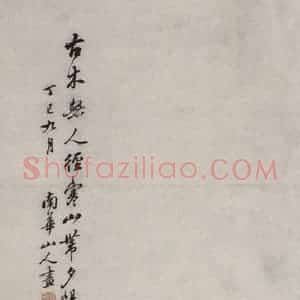 古木無人徑寒山帶夕
丁巳九月
南華山人畫
Shafaziliao.COM